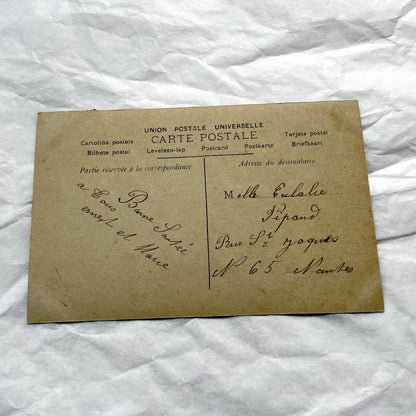 UNION POSTALE UNIVERSELLE
CARTE POSTALE
Cartolina postale
Tarjeta postal
Bilhete postal
Levelezo-lap
Postcard
Postkarte
Briefkaart
Partie réservée à la correspondance
Adresse du destinataire
Bonne Santée
a tous
ernest et Marie
Melle Eulalie
Pipaud
Rue St Jaques
N 65 - Nantes